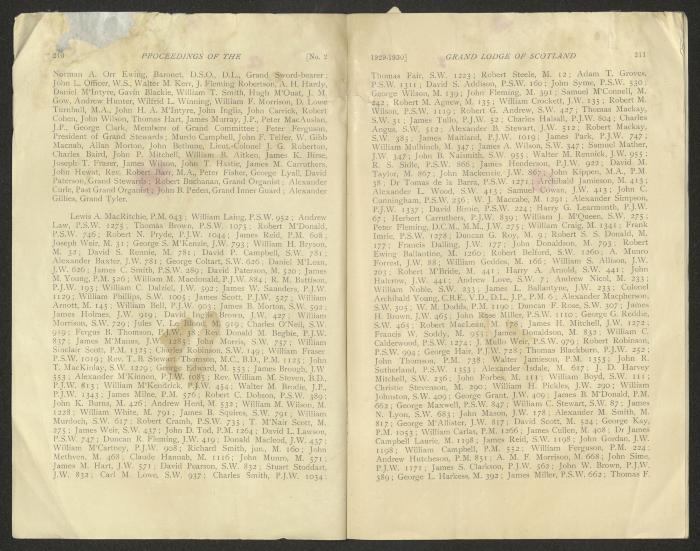 210 PROCEEDINGS OF THE [No. 2
Norman A. Orr Ewing, Baronet, D.S.O., D.L., Grand Sword-bearer;
John L. Officer, W.S., Walter M. Kerr, J. Fleming Robertson, A. H. Hardy,
Daniel M'Intyre, Gavin Blackie, William T. Smith, Hugh M'Ouat, J. M.
Gow, Andrew Hunter, Wilfrid L. Winning, William F. Morrison, D. Lowe
Turnbull, M.A., John H. A. M'Intyre, John Inglis, John Carrick, Robert
Cohen, John Wilson, Thomas Hart, James Murray, J.P., Peter MacAuslan,
J.P., George Clark, Members of Grand Committee; Peter Ferguson,
President of Grand Stewards; Mundo Campbell, John F. Telfer, W. Gibb
Macnab, Allan Morton, John Bethune, Lieut.-Colonel J. G. Roberton,
Charles Baird, John P. Mitchell, William B. Aitken, James K. Birse,
Joseph T. Fraser, James Wilson, John T. Hastie, James M. Carruthers,
John Hewat, Rev. Robert Barr, M.A., Peter Fisher, George Lyall, David
Paterson, Grand Stewards; Robert Buchanan, Grand Organist; Alexander
Curle, Past Grand Organist; John B. Peden, Grand Inner Guard; Alexander
Gillies, Grand Tyler.
Lewis A. MacRitchie, P.M. 643; William Laing, P.S.W. 952; Andrew
Law, P.S.W. 1275; Thomas Brown, P.S.W. 1075; Robert M'Donald,
P.S.W. 746; Robert N. Pryde, P.J.W. 1044; James Reid, P.M. 608;
Joseph Weir, M. 31; George S. M'Kenzie, J.W. 793; William H. Bryson,
M. 32; David S. Rennie, M. 781; David P. Campbell, S.W. 781;
Alexander Baxter, J.W. 781; George Coltart, S.W. 626; Daniel M'Lean,
J.W. 626; James C. Smith, P.S.W. 289; David Paterson, M. 520; James
M. Young, P.M. 526; William M. Macdonald, P.J.W. 884; R. M. Battison,
P.J.W. 193; William C. Dalziel, J.W. 592; James W. Saunders, P.J.W.
1129; William Phillips, S.W. 1005; James Scott, P.J.W. 527; William
Arnott, M. 145; William Bell, P.J.W. 903; James B. Morton, S.W. 592;
James Holmes, J.W. 919; David Brown, J.W. 427; William
Morrison, S.W. 729; Jules V. Le M. 919; Charles O'Neil, S.W.
919; Fergus B. Thomson, P.J.W. 38; Rev. Donald M. Begbie, P.J.W.
837; James M'Manus, J.W. 1285; John Morris, S.W. 757; William
Sinclair Scott, P.M. 1175; Charles Robinson, S.W. 149; William Fraser
P.S.W. 1019; Rev. T. B. Stewart Thomson, M.C., B.D., P.M. 1125; John
T. MacKinlay, S.W. 1229; George Edward, M. 553; James Brough, J.W.
553; Alexander M'Kinnon, P.J.W. 1085; Rev. William M. Steven, B.D.,
P.J.W. 813; William M'Kendrick, P.J.W. 454; Walter M. Brodie, J.P.,
P.J.W. 1343; James Milne, P.M. 576; Robert C. Dobson, P.S.W. 389;
John K. Butter, M. 426; Andrew Herd, M. 532; William M. Wilson, M.
1228; William White, M. 791; James B. Squires, S.W. 791; William
Murdoch, S.W. 617; Robert Cramb, P.S.W. 735; T. M'Nair Scott, M.
275; James Weir, S.W. 437; John D. Tod, P.M. 1264; David L. Lawson,
P.S.W. 747; Duncan R. Fleming, J.W. 419; Donald Macleod, J.W. 437;
William M'Cartney, P.J.W. 908; Richard Smith, jun., M. 160; John
Methven, M. 468; Claude Hannah, M. 1116; John Munro, M. 571;
James M. Hart, J.W. 571; David Pearson, S.W. 832; Stuart Stoddart,
J.W. 832; Carl M. Lowe, S.W. 937; Charles Smith, P.J.W. 1034;
1929-1930] GRAND LODGE OF SCOTLAND 211
Thomas Fair, S.W. 1223; Robert Steele, M. 12; Adam T. Groves,
P.S.W. 1311; David S. Addison, P.S.W. 160; John Syme, P.S.W. 230;
George Wilson, M. 139; John Fleming, M. 291; Samuel M'Connell, M.
242; Robert M. Agnew, M. 135; William Crockett, J.W. 135; Robert M.
Wilson, P.S.W. 1119; Robert G. Andrew, S.W. 427; Thomas Mackay,
S.W. 31; James Tullo, P.J.W. 52; Charles Halsall, P.J.W. 804; Charles
Angus, S.W. 512; Alexander B. Stewart, J.W. 512; Robert Mackay,
S.W. 385; James Maitland, P.J.W. 1019; James Park, P.J.W. 747;
William Mulbioch, M. 347; James A. Wilson, S.W. 347; Samuel Mather,
J.W. 347; John B. Naismith, S.W. 955; Walter M. Rennick, J.W. 955;
R. S. Sidle, P.S.W. 868; James Henderson, P.J.W. 922; David M.
Taylor, M. 867; John Mackenzie, J.W. 867; John Kippen, M.A., P.M.
38; Dr Tomas de la Barra, P.S.W. 1271; Archibald Jamieson, M. 413;
Alexander L. Wood, S.W. 413; Samuel Cowan, J.W. 413; John C.
Cunningham, P.S.W. 256; W. J. Maccabe, M. 1291; Alexander Simpson,
P.J.W. 1337; David Binnie, P.S.W. 224; Harry G. Learmonth, P.J.W.
67; Herbert Carruthers, P.J.W. 839; William J. M'Queen, S.W. 275;
Peter Fleming, D.C.M., M.M., J.W. 275; William Craig, M. 1341; Frank
Imrie, P.S.W. 1278; Duncan G. Roy, M. 9; Robert S. S. Donald, M.
177; Francis Dailing, J.W. 177; John Donaldson, M. 793; Robert
Ewing Ballantine, M. 1260; Robert Belford, S.W. 1260; A. Munro
Forrest, J.W. 88; William Geddes, M. 166; William S. Allison, J.W.
203; Robert M'Bride, M. 441; Harry A. Arnold, S.W. 441; John
Halcrow, J.W. 441; Andrew Love, S.W. 7; Andrew Nicol, M. 233;
William Noble, S.W. 233; James L. Ballantyne, J.W. 233; Colonel
Archibald Young, C.B.E., V.D., D.L., J.P., P.M. 6; Alexander Macpherson,
S.W. 305; W. M. Dodds, P.M. 1190; Duncan F. Rose, S.W. 307; James
H. Brown, J.W. 465; John Rose Miller, P.S.W. 1110; George G. Reddie,
S.W. 463; Robert MacLean, M. 178; James H. Mitchell, J.W. 1272;
Francis W. Soddy, M. 953; James Donaldson, M. 832; William C.
Calderwood, P.S.W. 1274; J. Mullo Weir, P.S.W. 979; Robert Robinson,
P.S.W. 994; George Hair, P.J.W. 728; Thomas Blackburn, P.J.W. 252;
John Thomson, P.M. 738; Walter Jamieson, P.M. 1355; John R.
Sutherland, P.S.W. 1353; Alexander Isdale, M. 617; J. D. Harvey
Mitchell, S.W. 236; John Forbes, M. 111; William Boyd, S.W. 111;
Christie Stevenson, M. 290; William H. Pickles, J.W. 290; William
Johnston, S.W. 409; George Grant, J.W. 409; James B. M'Donald, P.M.
662; George Maxwell, P.S.W. 847; William C. Stewart, S.W. 87; James
N. Lyon, S.W. 683; John Mason, J.W. 178; Alexander M. Smith, M.
817; George M'Allister, J.W. 817; David Scott, M. 524; George Kay,
P.M. 1053; William Carlas, P.M. 1266; James Cullen, M. 408; Dr James
Campbell Laurie, M. 1198; James Reid, S.W. 1198; John Gordan, J.W.
1198; William Campbell, P.M. 552; William Ferguson, P.M. 224;
Andrew Hutcheson, P.M. 851; A. M. F. Morrison, M. 668; John Sime,
P.J.W. 1171; James S. Clarkson, P.J.W. 562; John W. Brown, P.J.W.
389; George L. Harkess, M. 392; James Miller, P.S.W. 662; Thomas F.